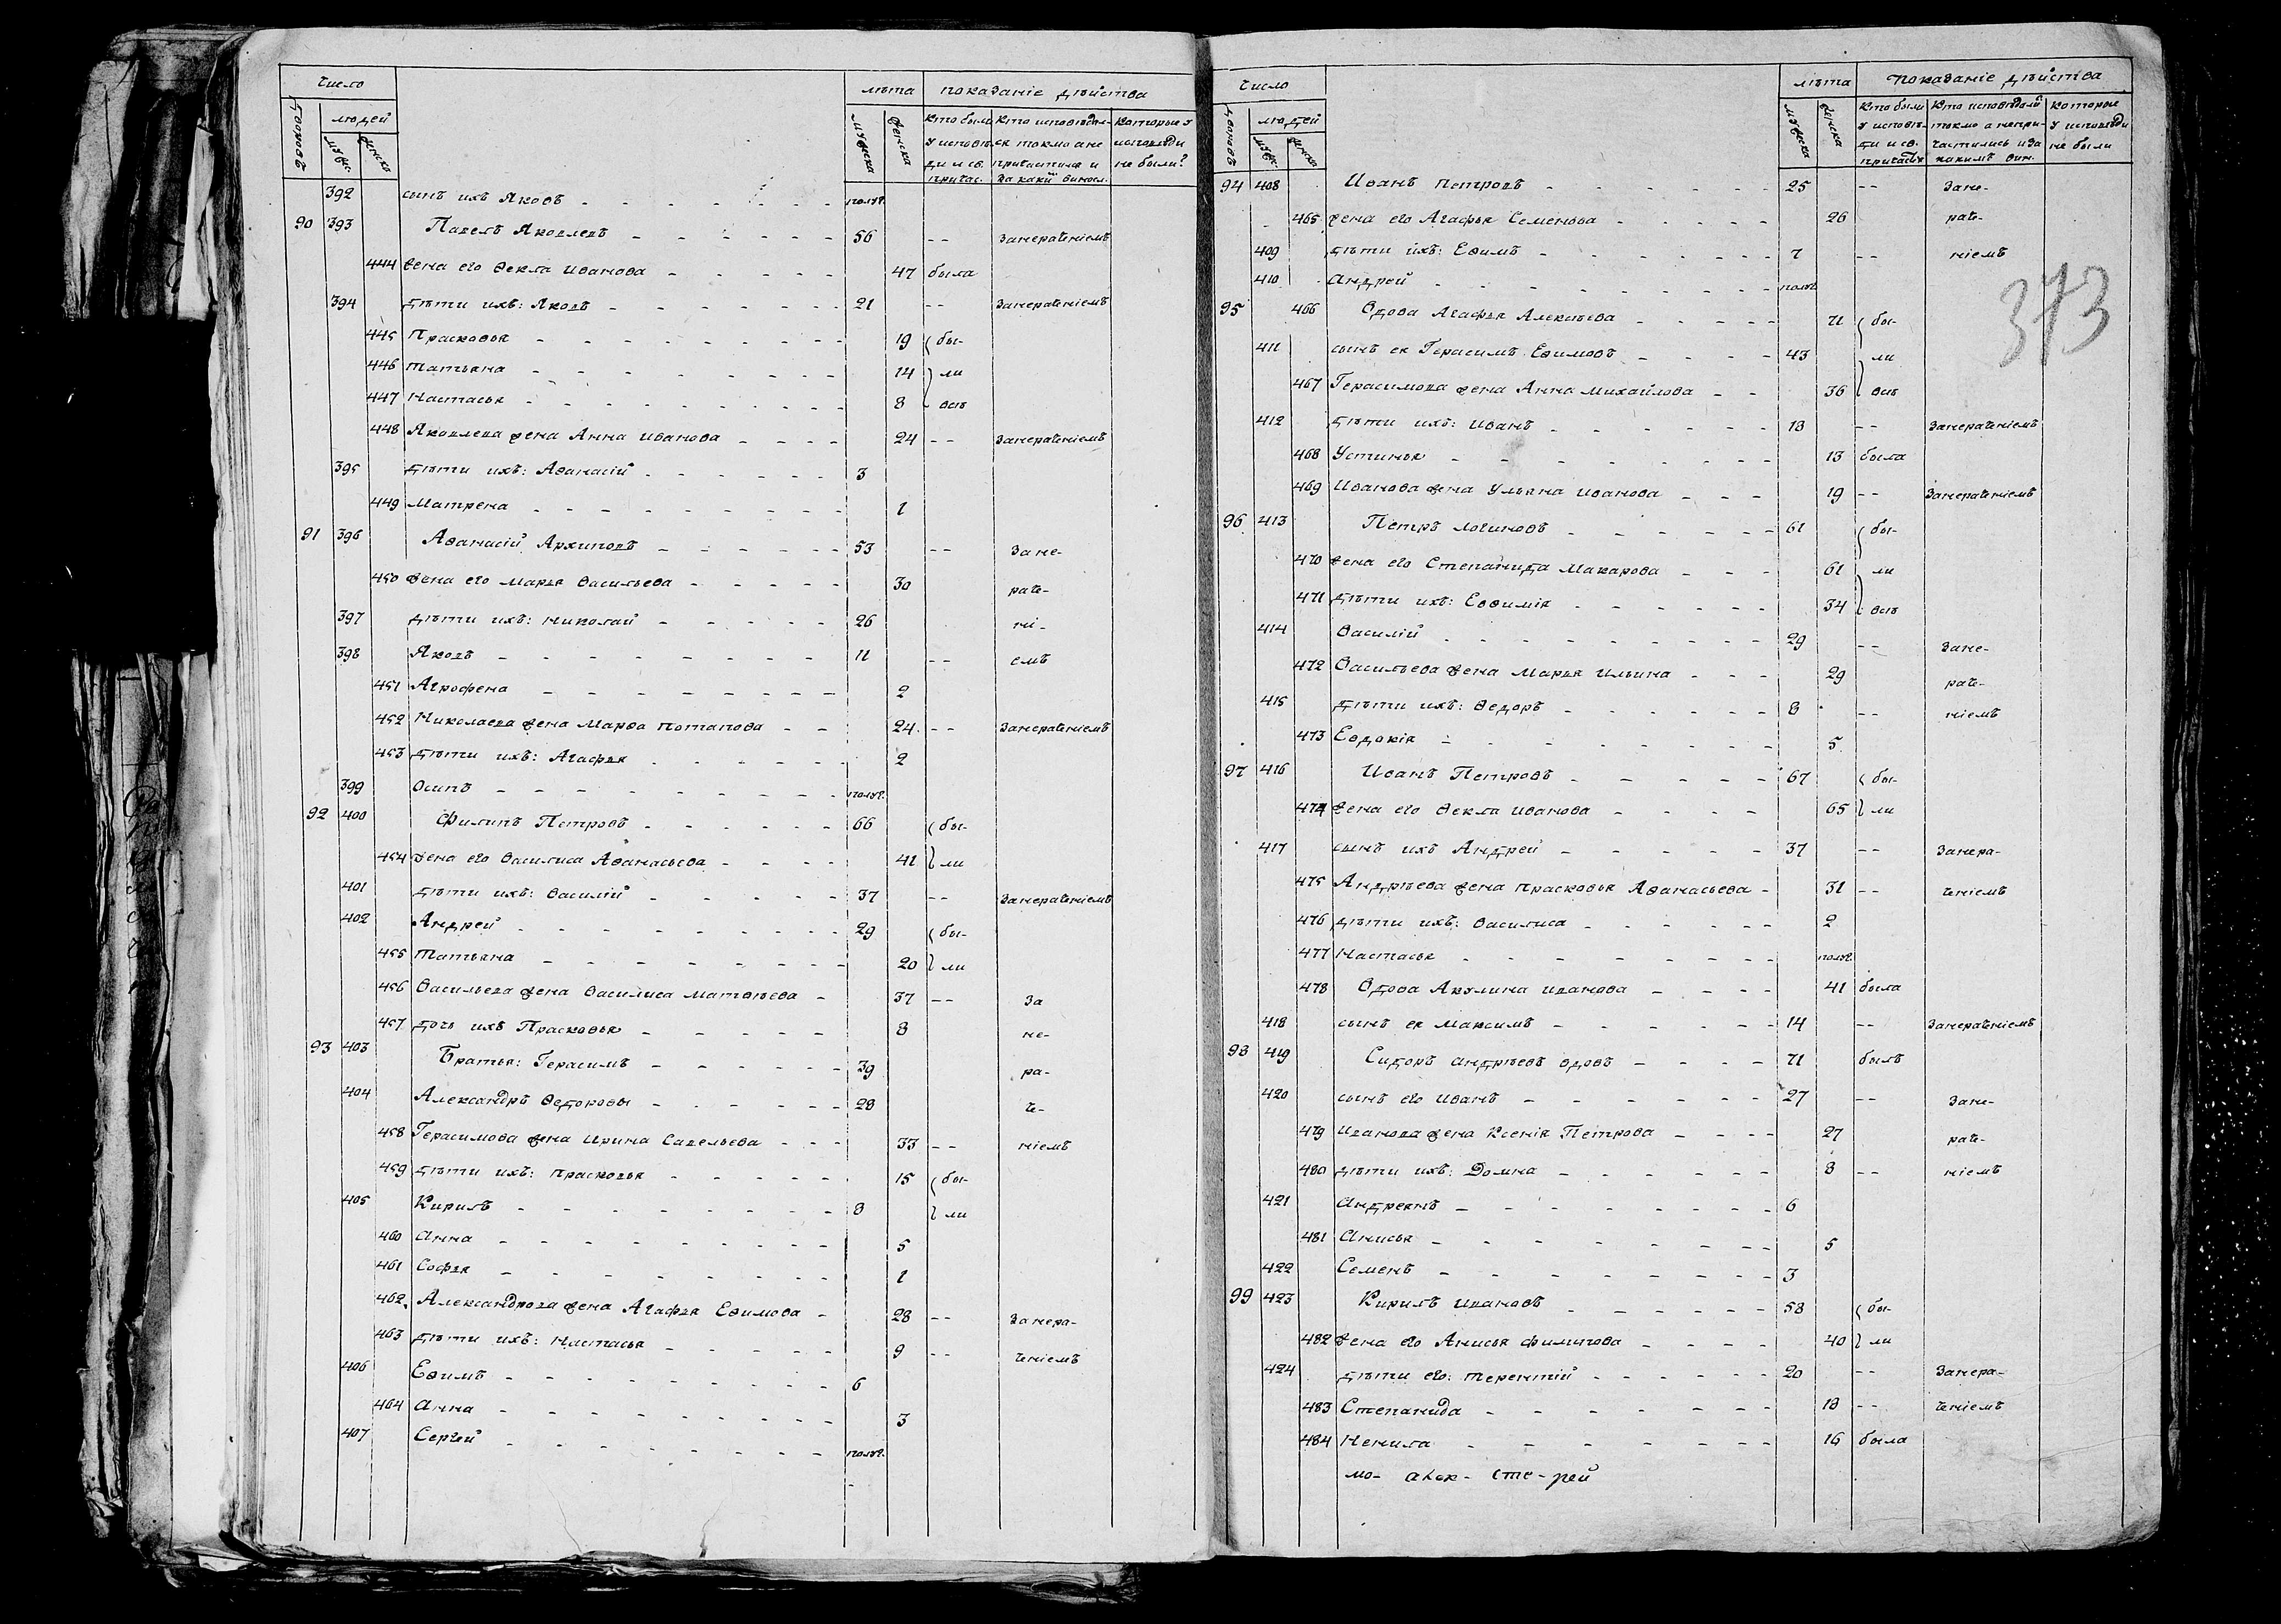 число лѣта показаніе дѣйства
дворовъ людей мужеска женска кто были у исповѣди и св. причас. кто исповѣдался токмо а не причастился и за какй винам. которые у исповѣди не были?
мужес. женска
392 сынъ ихъ Яковъ полуг.
90 393 Павелъ Яковлевъ 56 -- занераченіемъ
444 жена его Ѳекла Иванова 47 была
394 дѣти ихъ: Яковъ 21 -- занераченіемъ
445 Прасковья 19 бы-
446 Татьяна 14 ли
447 Настасья 8 всѣ
448 Яковлева жена Анна Иванова 24 -- занераченіемъ
395 дѣти ихъ: Аѳанасій 3
449 Матрена 1
91 396 Аѳанасій Архиповъ 53 -- зане-
450 жена его Марья Васильева 30 раче-
397 дѣти ихъ: Николай 26 ні-
398 Яковъ 11 -- емъ
451 Агрофена 2
452 Николаева жена Марѳа Потапова 24 -- занераченіемъ
453 дѣти ихъ: Агафья 2
399 Осипъ полуг.
92 400 Филипъ Петровъ 66 бы-
454 жена его Василиса Аѳанасьева 41 ли
401 дѣти ихъ: Василій 37 -- занераченіемъ
402 Андрей 29 бы-
455 Татьяна 20 ли
456 Васильева жена Василиса Матвѣева 37 -- за
457 дочь ихъ Прасковья 8 не-
93 403 Братья: Герасимъ 39 ра-
404 Александръ Ѳедоровы 28 че-
458 Герасимова жена Ирина Савельева 33 -- ніемъ
459 дѣти ихъ: Прасковья 15 бы-
405 Кирилъ 8 ли
460 Анна 5
461 Софья 1
462 Александрова жена Агафья Еѳимова 28 -- занера-
463 дѣти ихъ: Настасья 9 -- ченіемъ
406 Еѳимъ 6
464 Анна 3
407 Сергей полуг.
число лѣта показаніе дѣйства
дворовъ людей мужеска женска кто были у исповѣди и св. причастія кто исповѣдалй токмо а непричастились и за какимъ вин. которые у исповѣди не были
мужес. женска
94 408 Иванъ Петровъ 25 -- зане-
465 жена его Агафья Семенова 26 раче-
409 дѣти ихъ: Еѳимъ 7 -- ніемъ
410 Андрей полуг.
373
95 466 Вдова Агафья Алексѣева 71 бы-
411 сынъ ея Герасимъ Еѳимовъ 43 ли
467 Герасимова жена Анна Михайлова 36 всѣ
412 дѣти ихъ: Иванъ 18 -- занераченіемъ
468 Устинья 13 была
469 Иванова жена Ульяна Иванова 19 -- занераченіемъ
96 413 Петръ Логиновъ 61 бы-
470 жена его Степанида Макарова 61 ли
471 дѣти ихъ: Евѳимія 34 всѣ
414 Василій 29 -- зане-
472 Васильева жена Марья Ильина 29 раче-
415 дѣти ихъ: Ѳедоръ 8 -- ніемъ
473 Евдокія 5
97 416 Иванъ Петровъ 67 бы-
474 жена его Ѳекла Иванова 65 ли
417 сынъ ихъ Андрей 37 -- занера-
475 Андрѣева жена Прасковья Аѳанасьева 31 -- ченіемъ
476 дѣти ихъ: Василиса 2
477 Настасья полуг.
478 Вдова Акулина Иванова 41 была
418 сынъ ея Максимъ 14 -- занераченіемъ
98 419 Сидоръ Андрѣевъ вдовъ 71 былъ
420 сынъ его Иванъ 27 -- зане-
479 Иванова жена Ксенія Петрова 27 раче-
480 дѣти ихъ: Домна 8 -- ніемъ
421 Андреянъ 6
481 Анисья 5
422 Семенъ 3
99 423 Кирилъ Ивановъ 58 бы-
482 жена его Анисья Филипова 40 ли
424 дѣти его: Терентій 20 -- занера-
483 Степанида 18 -- ченіемъ
484 Ненила 16 была